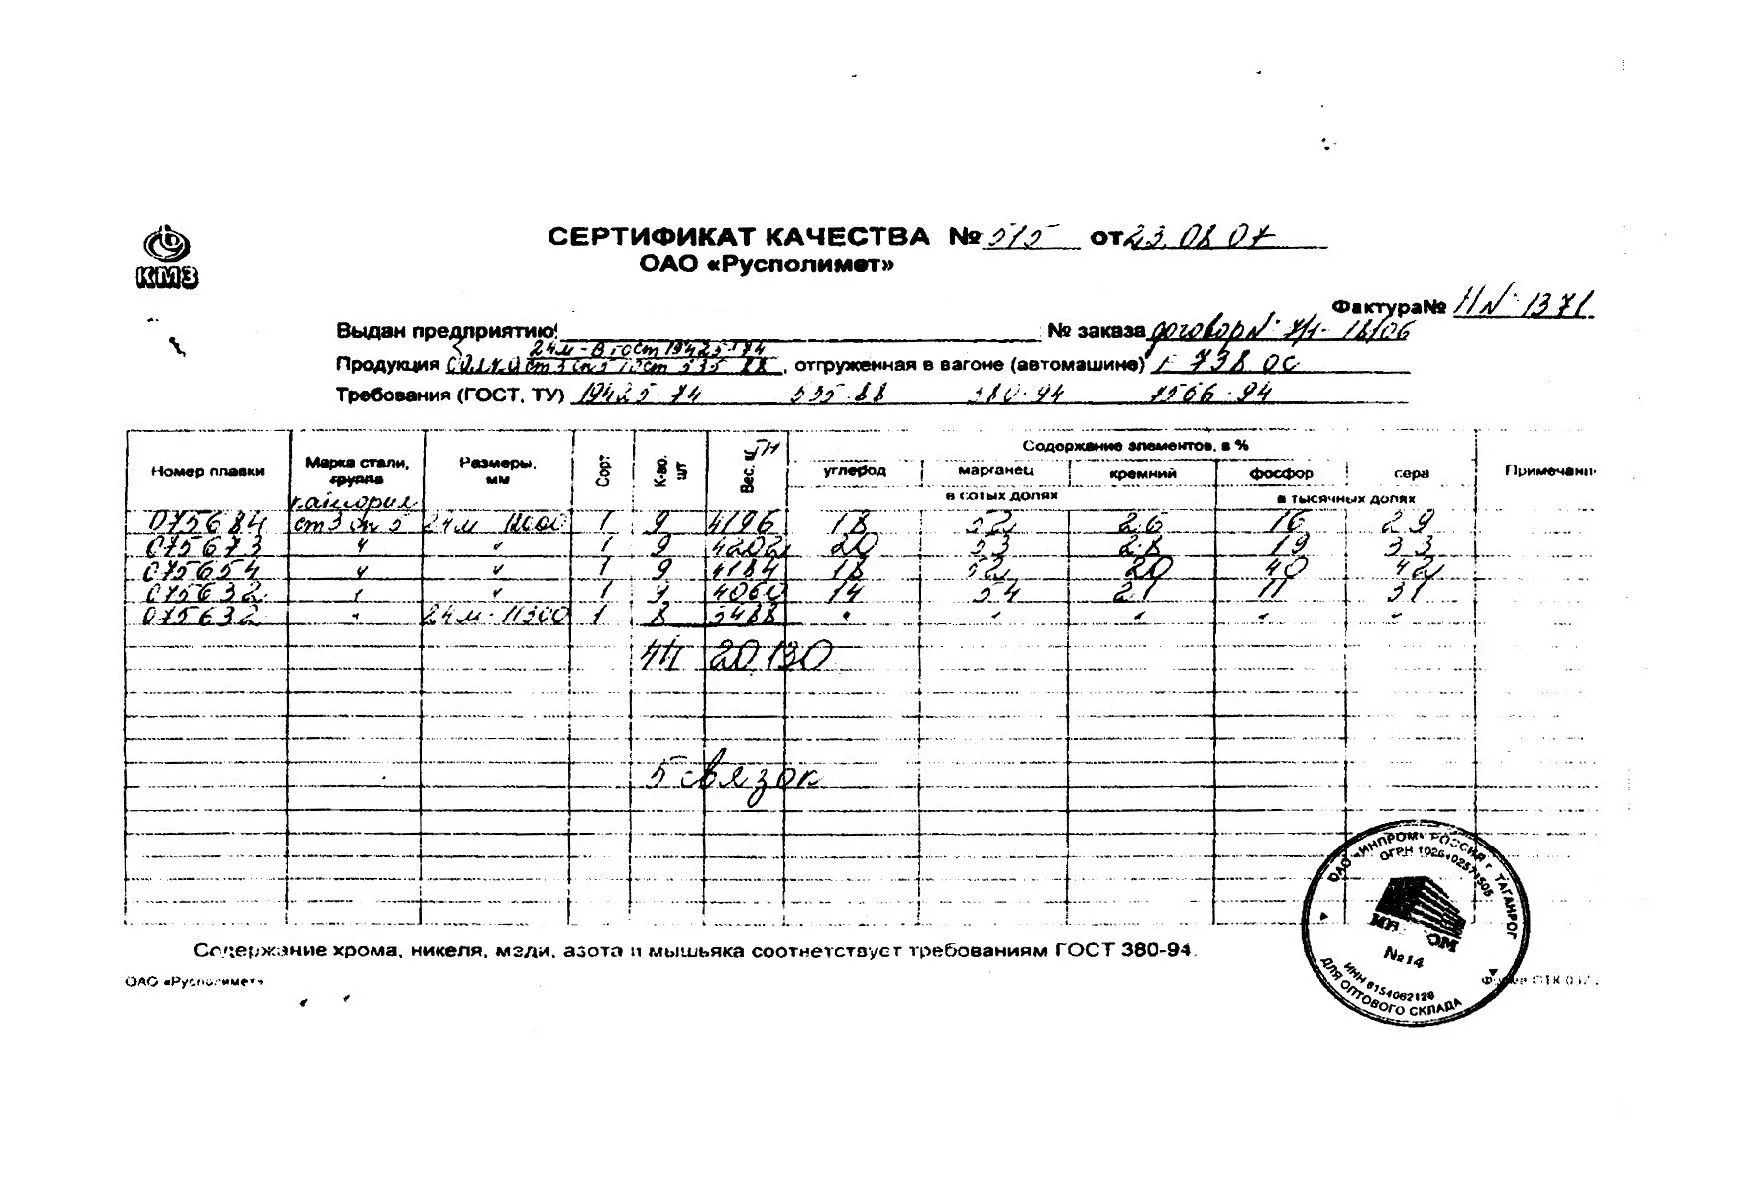 КМЗ
СЕРТИФИКАТ КАЧЕСТВА № 515 от 23.08.07
ОАО «Русполимет»
Фактура№ 1371
Выдан предприятию № заказа договор №
24м-В гост 19425-74
Продукция ст3сп5 гост 535-88, отгруженная в вагоне (автомашине) 738 ОС
Требования (ГОСТ, ТУ) 19425-74 535-88 380-94 7566-94
Номер плавки Марка стали, группа категория Размеры, мм Сорт К-во. шт Вес. тн Содержание элементов, в %
углерод марганец кремний фосфор сера Примечани
в сотых долях в тысячных долях
075684 ст3сп5 24м 12000 1 9 4196 18 52 26 16 29
075673 " " 1 9 4202 20 53 28 19 33
075654 " " 1 9 4184 18 52 20 40 42
075632 " " 1 9 4060 14 54 21 11 31
075632 " 24м-11300 1 8 3488 " " " " "
44 20130
5 связок
Содержание хрома, никеля, меди, азота и мышьяка соответствует требованиям ГОСТ 380-94.
ОАО «Русполимет»
ОАО «ИНПРОМ» РОССИЯ г. ТАГАНРОГ
ОГРН 1026102571505
№14
ИНН 6154062128
ДЛЯ ОПТОВОГО СКЛАДА